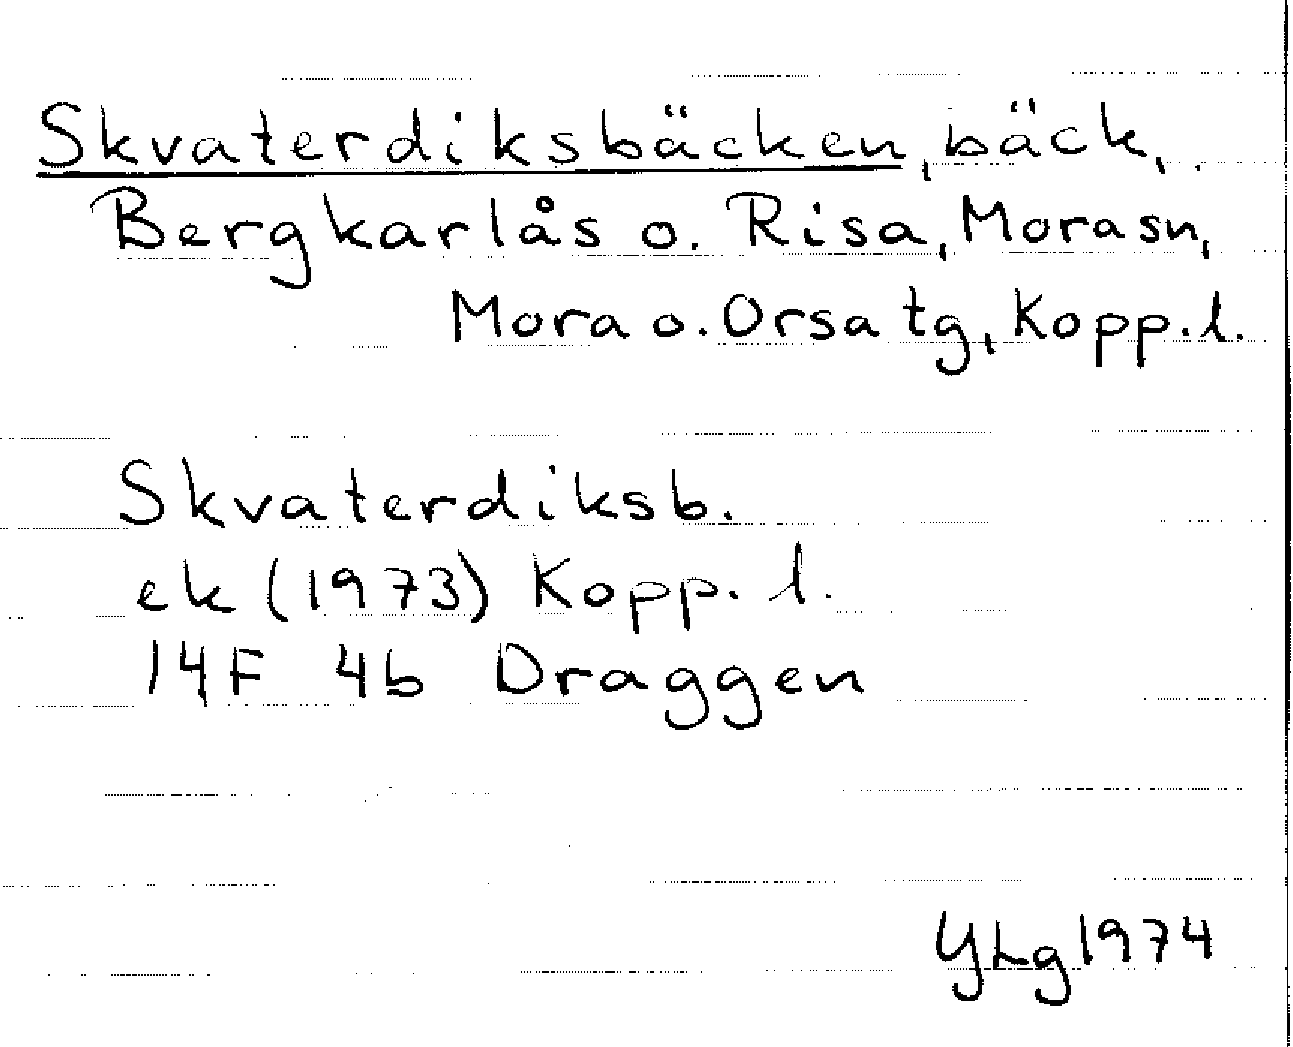 Skvaterdiksbäcken, bäck,
Bergkarlås o. Risa, Mora sn,
Mora o. Orsa tg, Kopp. l.
Skvaterdiksb.
ek (1973) Kopp. l.
14F 4b Draggen
YLg 1974